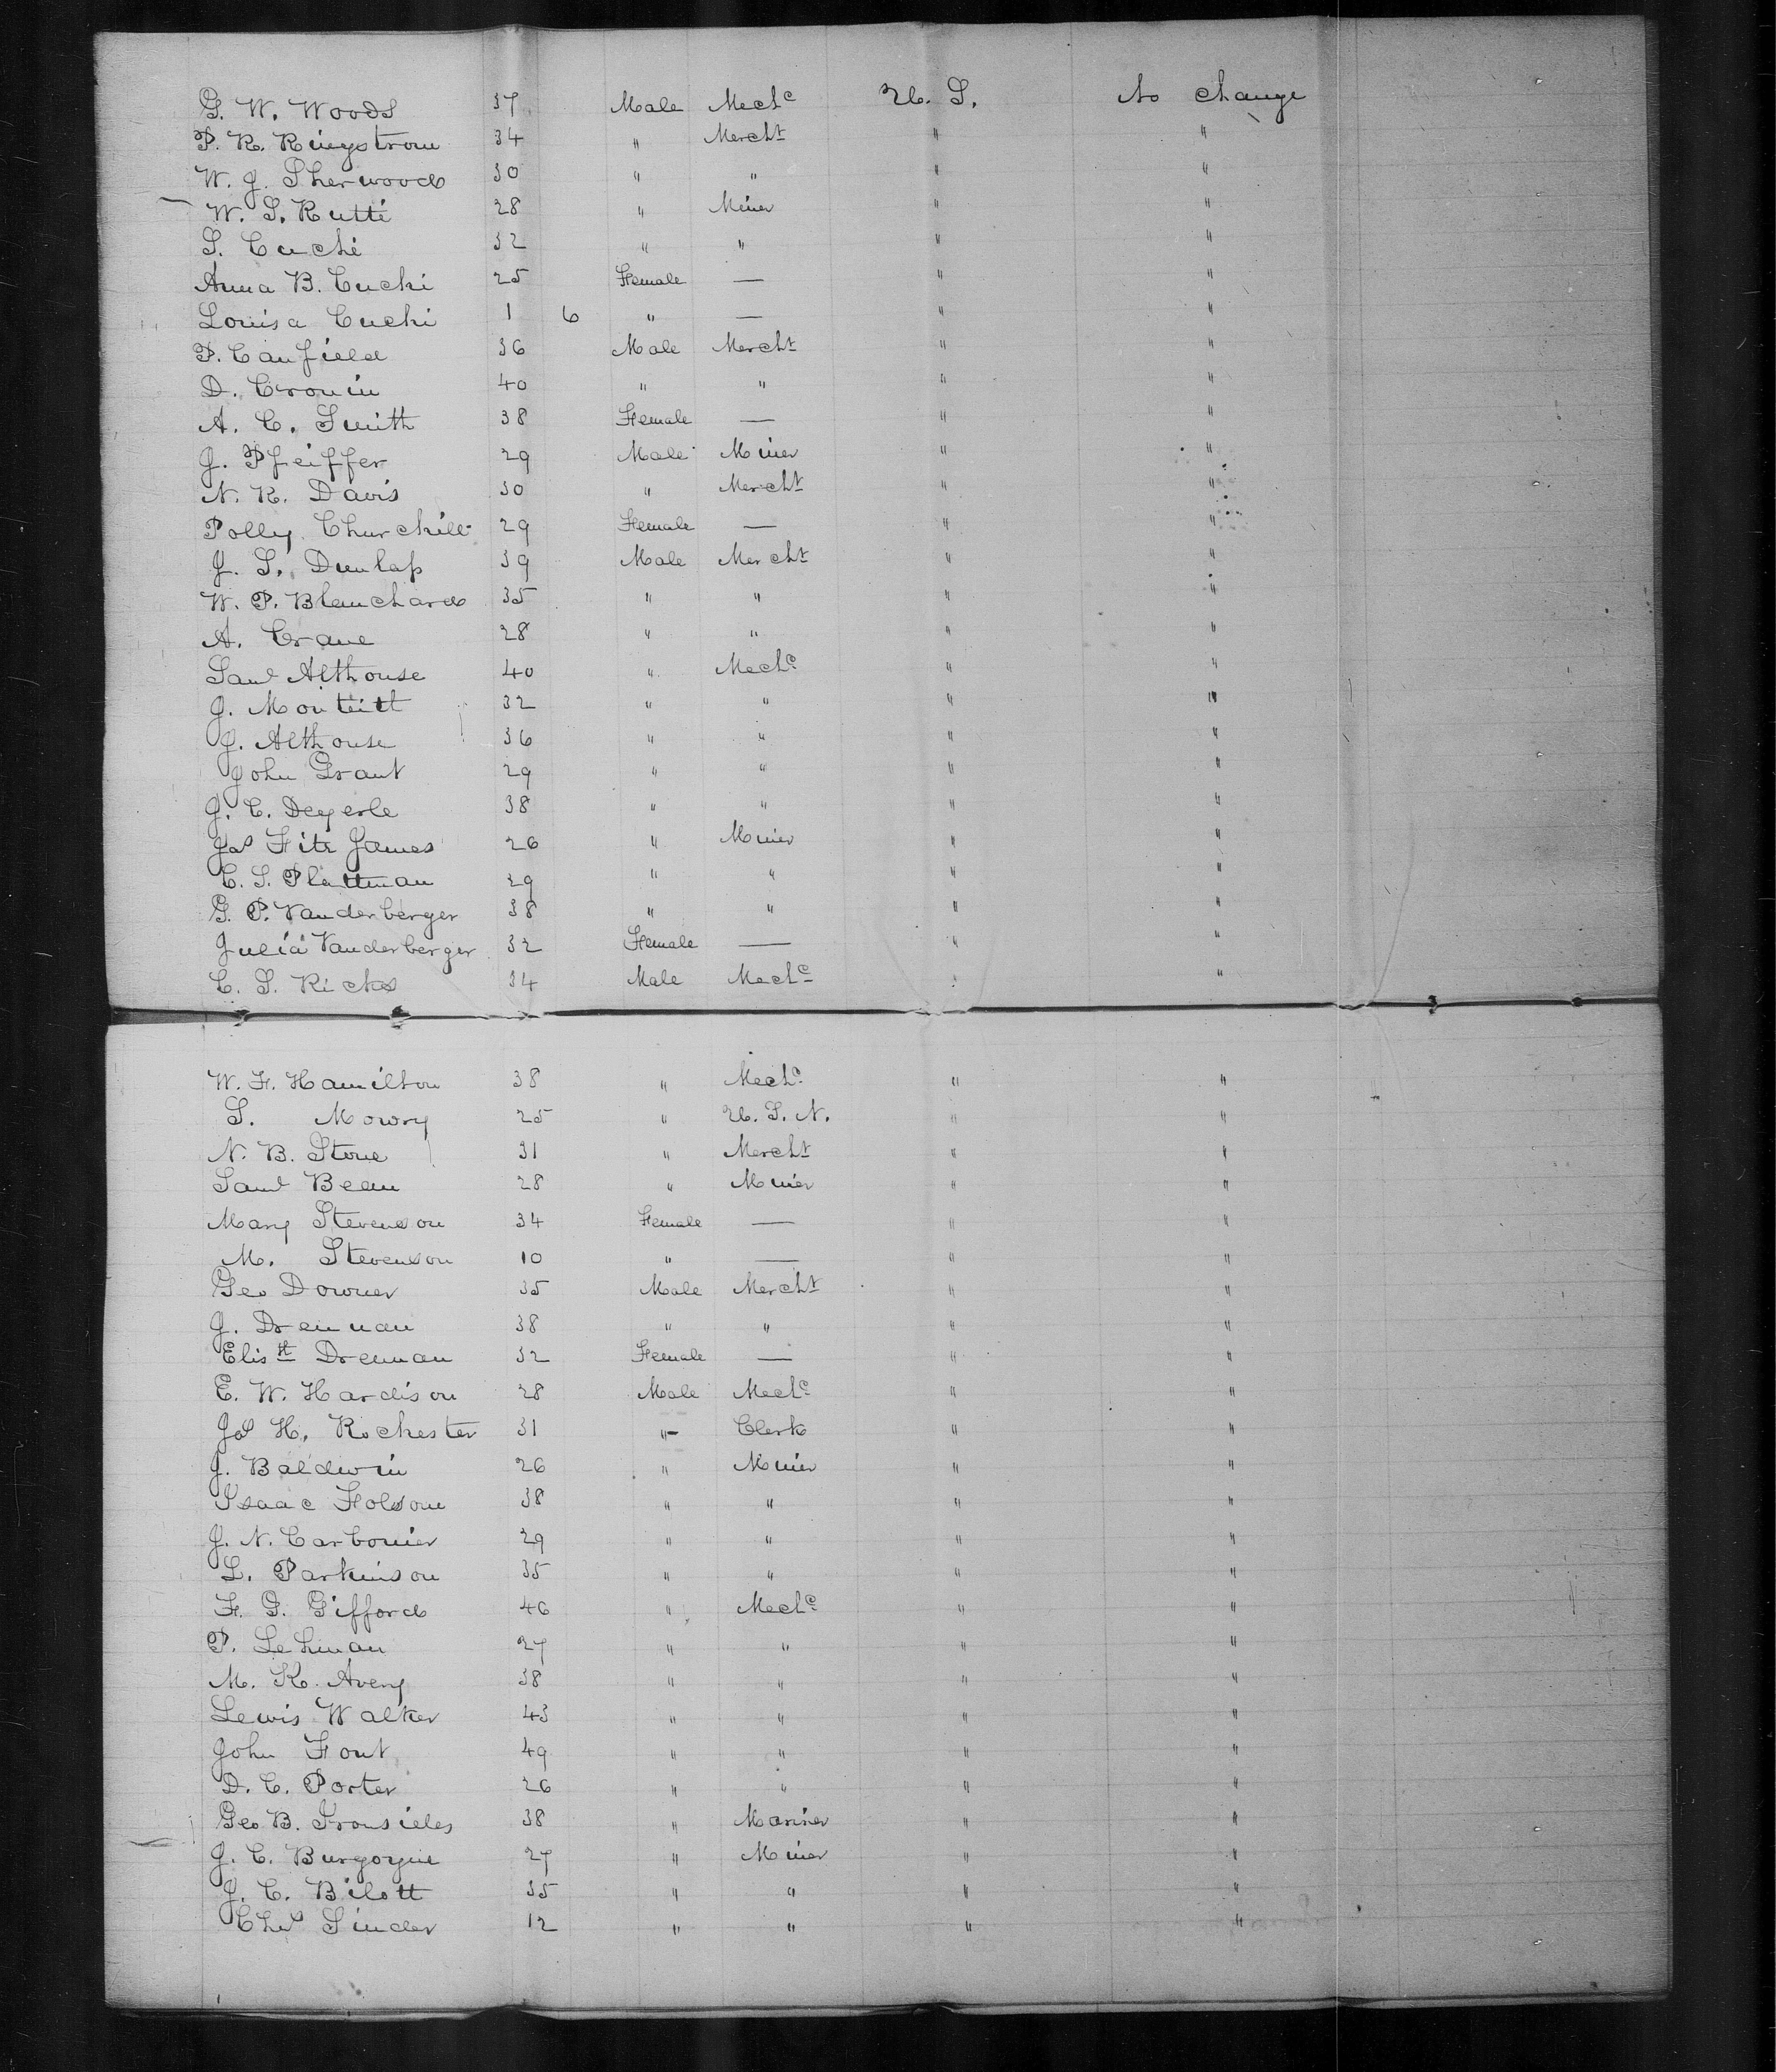 G. W. Woods 37 Male Mechc U. S. No change
P. R. Ringstrom 34 " Mercht " "
W. J. Sherwood 30 " " " "
W. S. Rutti 28 " Miner " "
S. Cuchi 32 " " " "
Anna B. Cuchi 25 Female — " "
Louisa Cuchi 1 6 " — " "
P. Canfield 36 Male Mercht " "
D. Cronin 40 " " " "
A. C. Smith 38 Female — " "
J. Pfeiffer 29 Male Miner " "
N. K. Davis 30 " Mercht " "
Polly Churchill 29 Female — " "
J. S. Dunlap 39 Male Mercht " "
W. P. Blanchard 35 " " " "
A. Crane 28 " " " "
Saml Althouse 40 " Mechc " "
J. Monteitt 32 " " " "
J. Althouse 36 " " " "
John Grant 29 " " " "
J. C. Deyerle 38 " " " "
Jas Fitz James 26 " Miner " "
C. S. Plattman 29 " " " "
G. P. Vanderberger 38 " " " "
Julia Vanderberger 32 Female — " "
C. S. Ricks 34 Male Mechc " "
W. F. Hamilton 38 " Mechc " "
S. Mowry 25 " U. S. N. " "
N. B. Stone 31 " Mercht " "
Saml Bean 28 " Miner " "
Mary Stevenson 34 Female — " "
M. Stevenson 10 " — " "
Geo Downer 35 Male Mercht " "
J. Drennan 38 " " " "
Elisth Drennan 32 Female — " "
E. W. Hardison 28 Male Mechc " "
Jas H. Rochester 31 " Clerk " "
J. Baldwin 26 " Miner " "
Isaac Folsom 38 " " " "
J. N. Carbonier 29 " " " "
L. Parkinson 35 " " " "
F. G. Gifford 46 " Mechc " "
P. Lehman 27 " " " "
M. K. Avery 38 " " " "
Lewis Walker 43 " " " "
John Font 49 " " " "
D. C. Porter 26 " " " "
Geo B. 38 " Mariner " "
J. C. Burgoyne 27 " Miner " "
J. C. Bilott 35 " " " "
Chs Sinder 12 " " " "